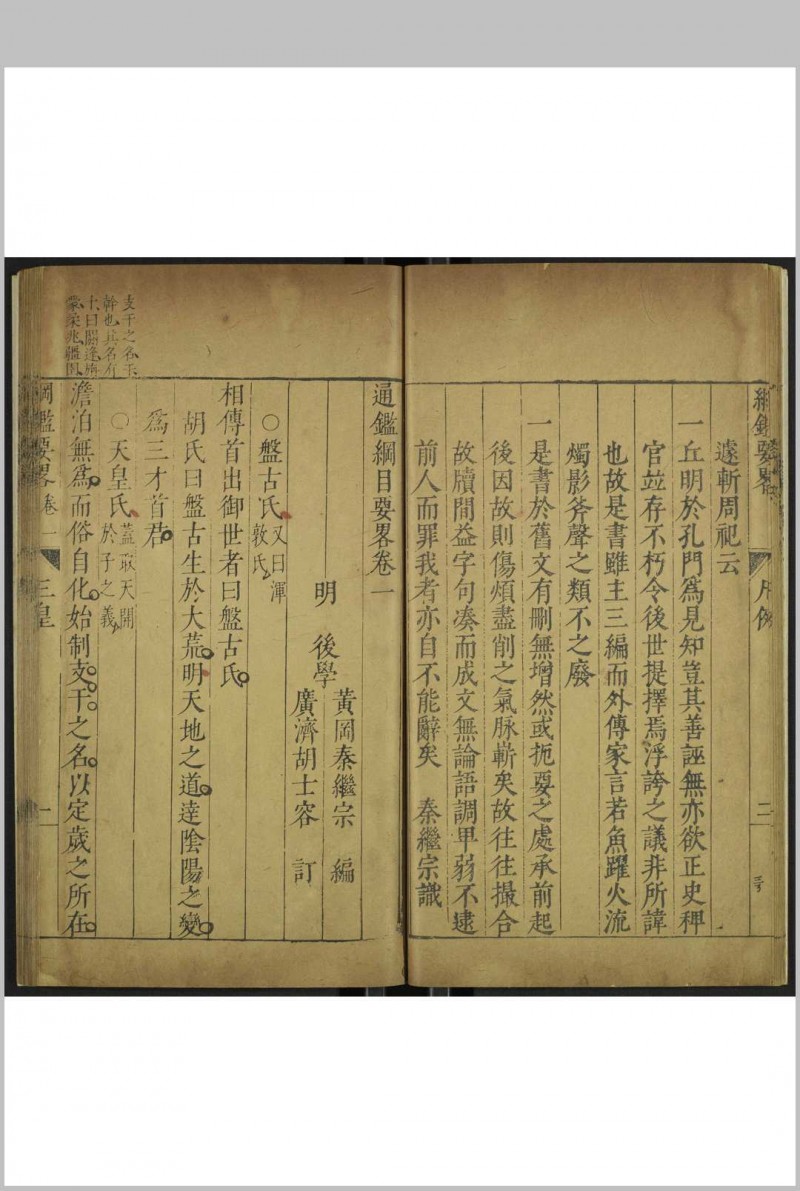 綱鑑要畧 凡例 二
遽斬周祀云
一丘明於孔門爲見知豈其善誣無亦欲正史稗
官竝存不朽令後世提擇焉浮誇之議非所諱
也故是書雖主三編而外傳家言若魚躍火流
燭影斧聲之類不之廢
一是書於舊文有刪無增然或扼要之處承前起
後因故則傷煩盡削之氣脉斬矣故往往撮合
故牘間益字句湊而成文無論語調卑弱不逮
前人而罪我者亦自不能辭矣 秦繼宗識
通鑑綱目要畧卷一
明 後學 黃岡秦繼宗 編
廣濟胡士容 訂
○盤古氏又曰渾
敦氏
相傳首出御世者曰盤古氏
胡氏曰盤古生於大荒明天地之道達陰陽之變
爲三才首君
○天皇氏蓋取天開
於子之義
澹泊無爲而俗自化始制支干之名以定歲之所在
支干之名干
幹也其名有
十曰閼逢旃
蒙柔兆疆圉
綱鑑要畧 卷一 三皇 一